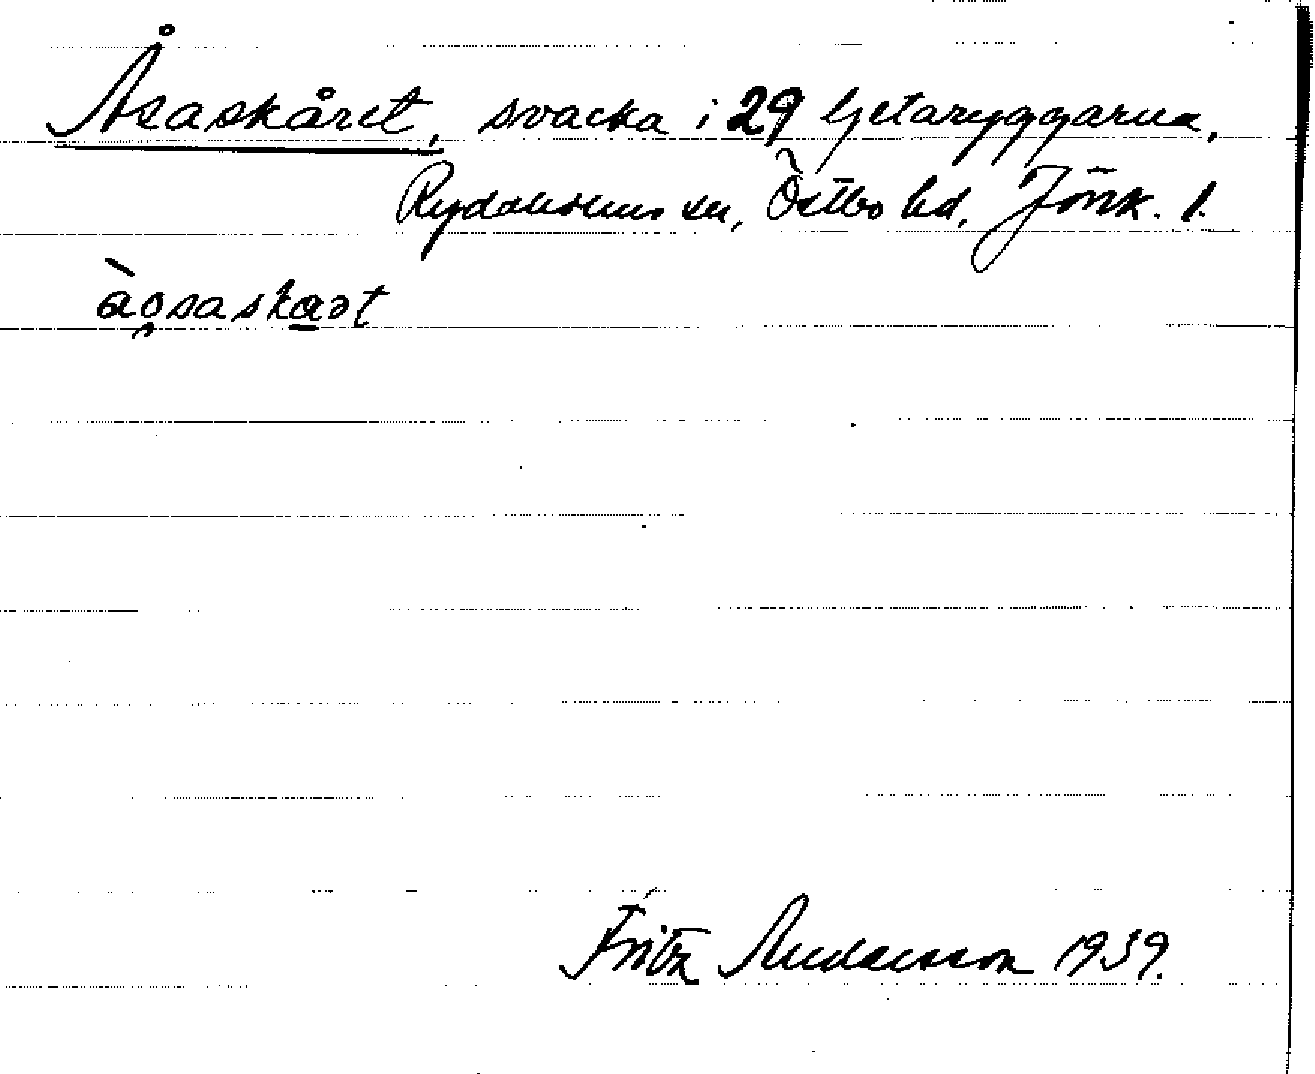 Åsaskåret, svacka i 29 Getaryggarna,
Rydaholms sn, Östbo hd, Jönk. l.
ào̭saska̲ət
Fritz Andersson 1939.